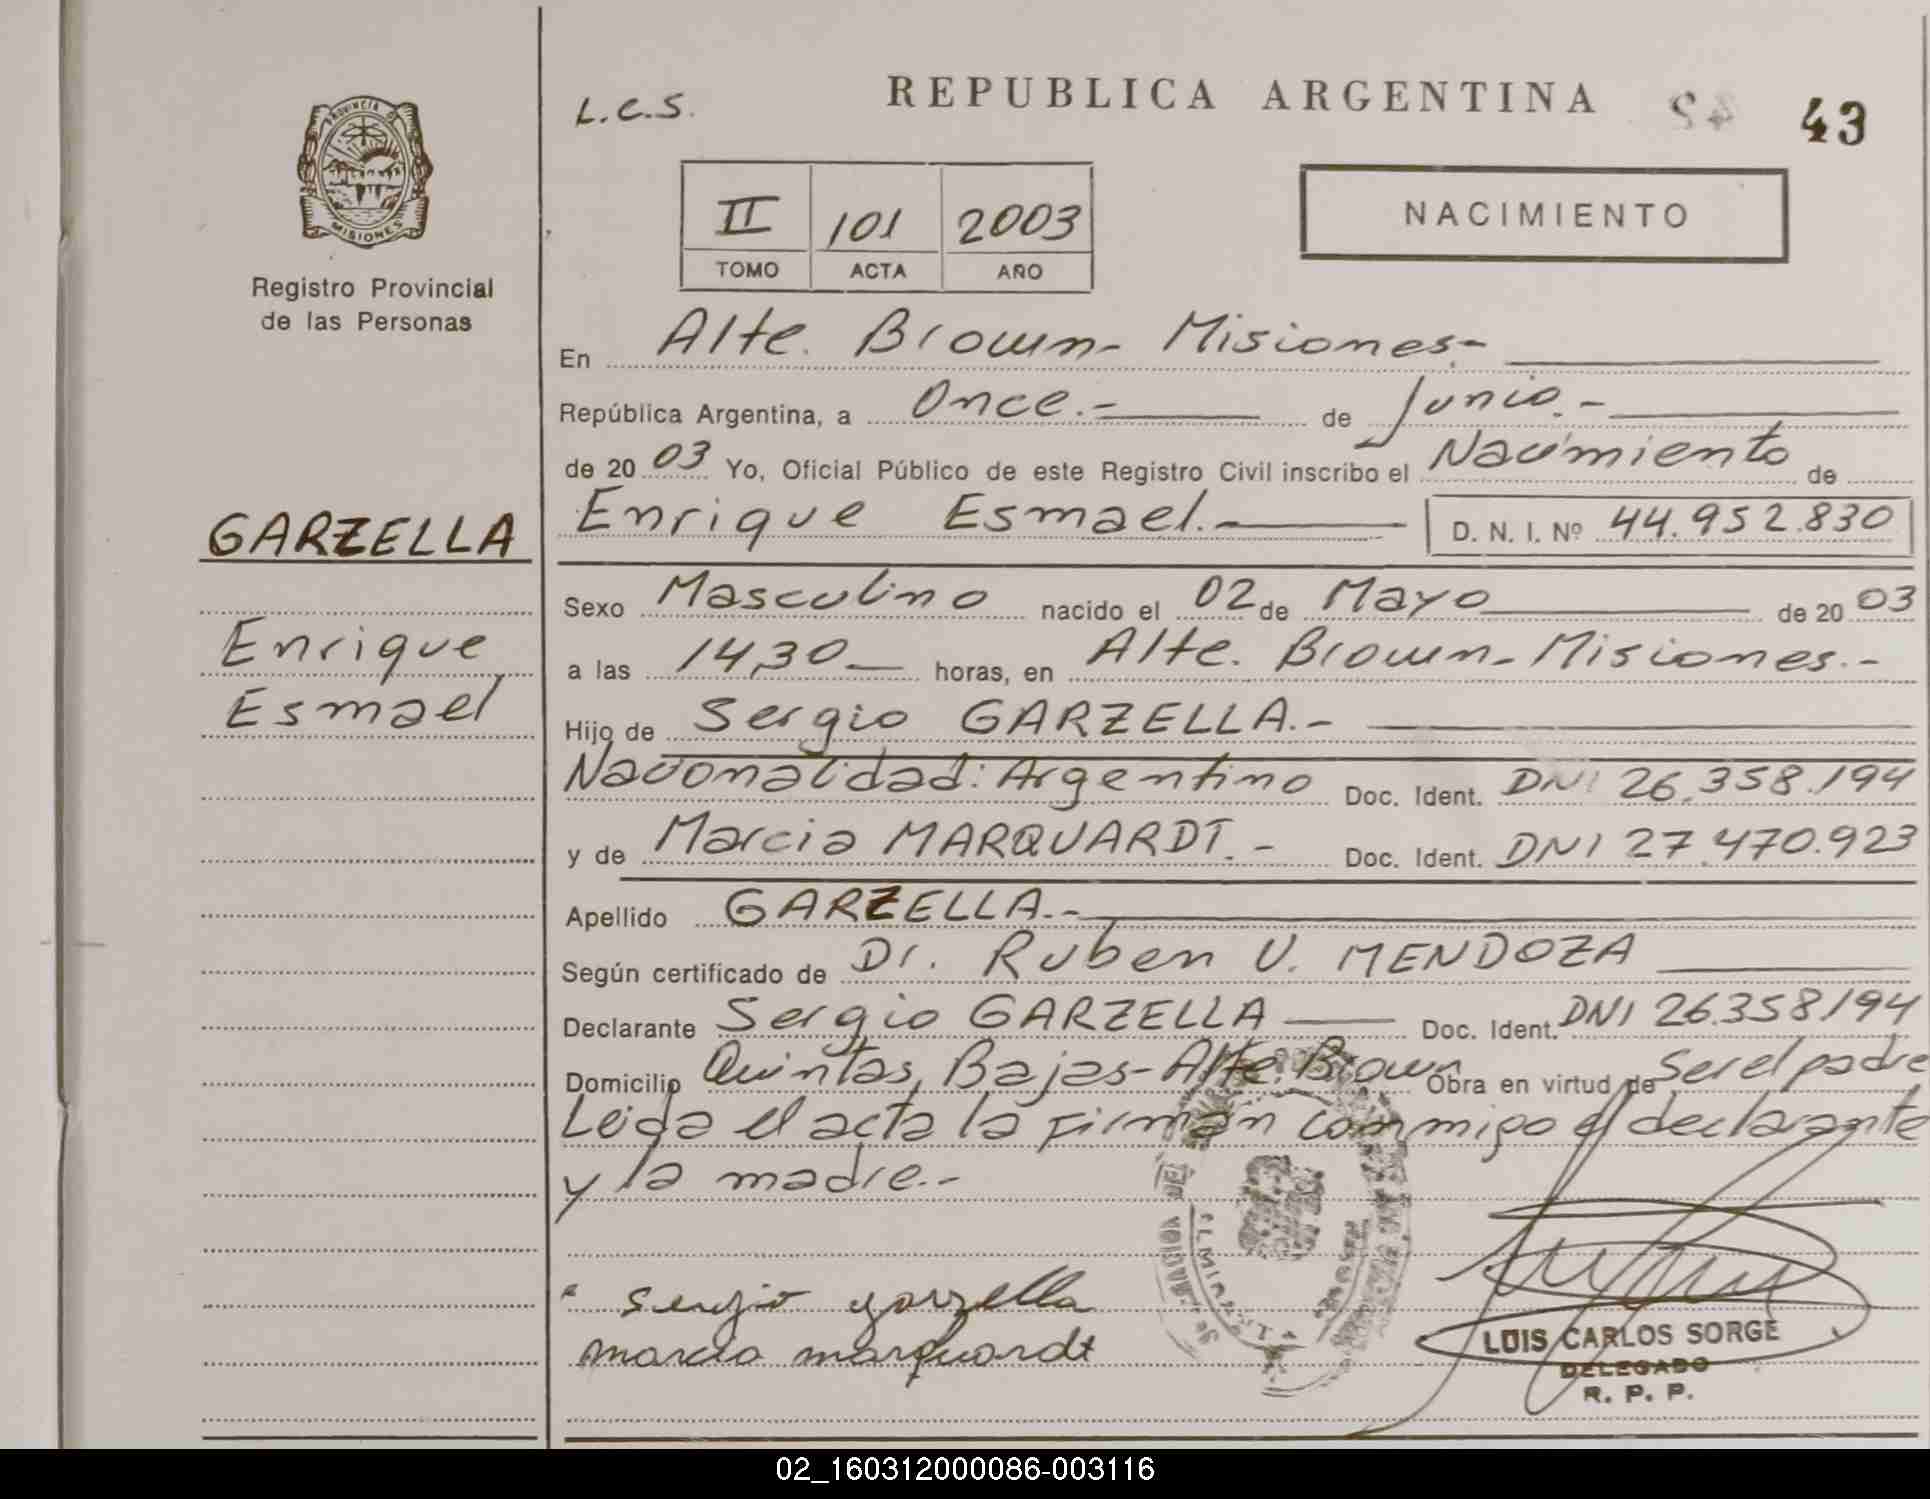 REPUBLICA ARGENTINA
L.C.S.
43
PROVINCIA DE
MISIONES
Registro Provincial
de las Personas
II 101 2003
TOMO ACTA AÑO
NACIMIENTO
En Alte. Brown- Misiones-
República Argentina, a Once.- de Junio.-
de 20 03 Yo, Oficial Público de este Registro Civil inscribo el Nacimiento de
Enrique Esmael.- D. N. I. Nº 44.952.830
GARZELLA
Enrique
Esmael
Sexo Masculino nacido el 02 de Mayo de 20 03
a las 14,30 horas, en Alte. Brown- Misiones.-
Hijo de Sergio GARZELLA.-
Nacionalidad: Argentino Doc. Ident. DNI 26.358.194
y de Marcia MARQUARDT.- Doc. Ident. DNI 27.470.923
Apellido GARZELLA.-
Según certificado de Dr. Ruben V. MENDOZA
Declarante Sergio GARZELLA Doc. Ident. DNI 26.358.194
Domicilio Quintas Bajas-Alte. Brown Obra en virtud de Ser el padre
Leida el acta la firman conmigo el declarante
y la madre.-
sergio garzella
marcia marquardt
LUIS CARLOS SORGE
DELEGADO
R. P. P.
02_160312000086-003116